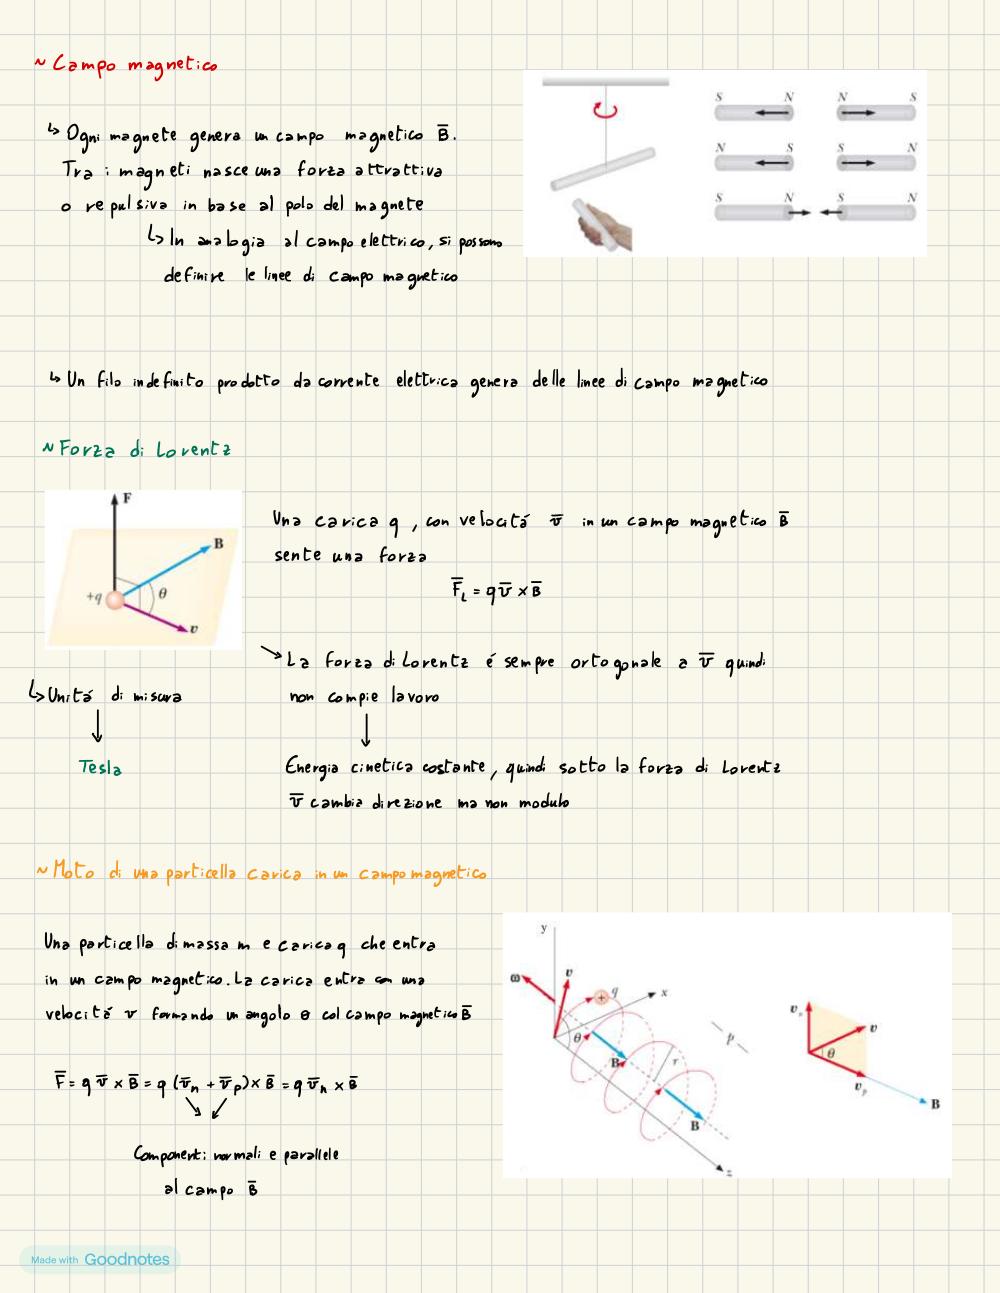 ~ Campo magnetico
↳ Ogni magnete genera un campo magnetico B̅.
Tra i magneti nasce una forza attrattiva
o repulsiva in base al polo del magnete
↳ In analogia al campo elettrico, si possono
definire le linee di campo magnetico
S N N S
N S S N
S N S N
↳ Un filo indefinito prodotto da corrente elettrica genera delle linee di campo magnetico
~ Forza di Lorentz
F
B
+q θ
v
Una carica q, con velocitá v̅ in un campo magnetico B̅
sente una forza
F̅L = q v̅ × B̅
↘ La forza di Lorentz é sempre ortogonale a v̅ quindi
non compie lavoro
↓
Energia cinetica costante, quindi sotto la forza di Lorentz
v̅ cambia direzione ma non modulo
↳ Unitá di misura
↓
Tesla
~ Moto di una particella carica in un campo magnetico
Una particella di massa m e carica q che entra
in un campo magnetico. La carica entra con una
velocitá v formando un angolo θ col campo magnetico B̅
F̅ = q v̅ × B̅ = q (v̅n + v̅p) × B̅ = q v̅n × B̅
Componenti normali e parallele
al campo B̅
y
ω v + q x
θ B r p
B
z
v
θ
vp
B
Made with Goodnotes